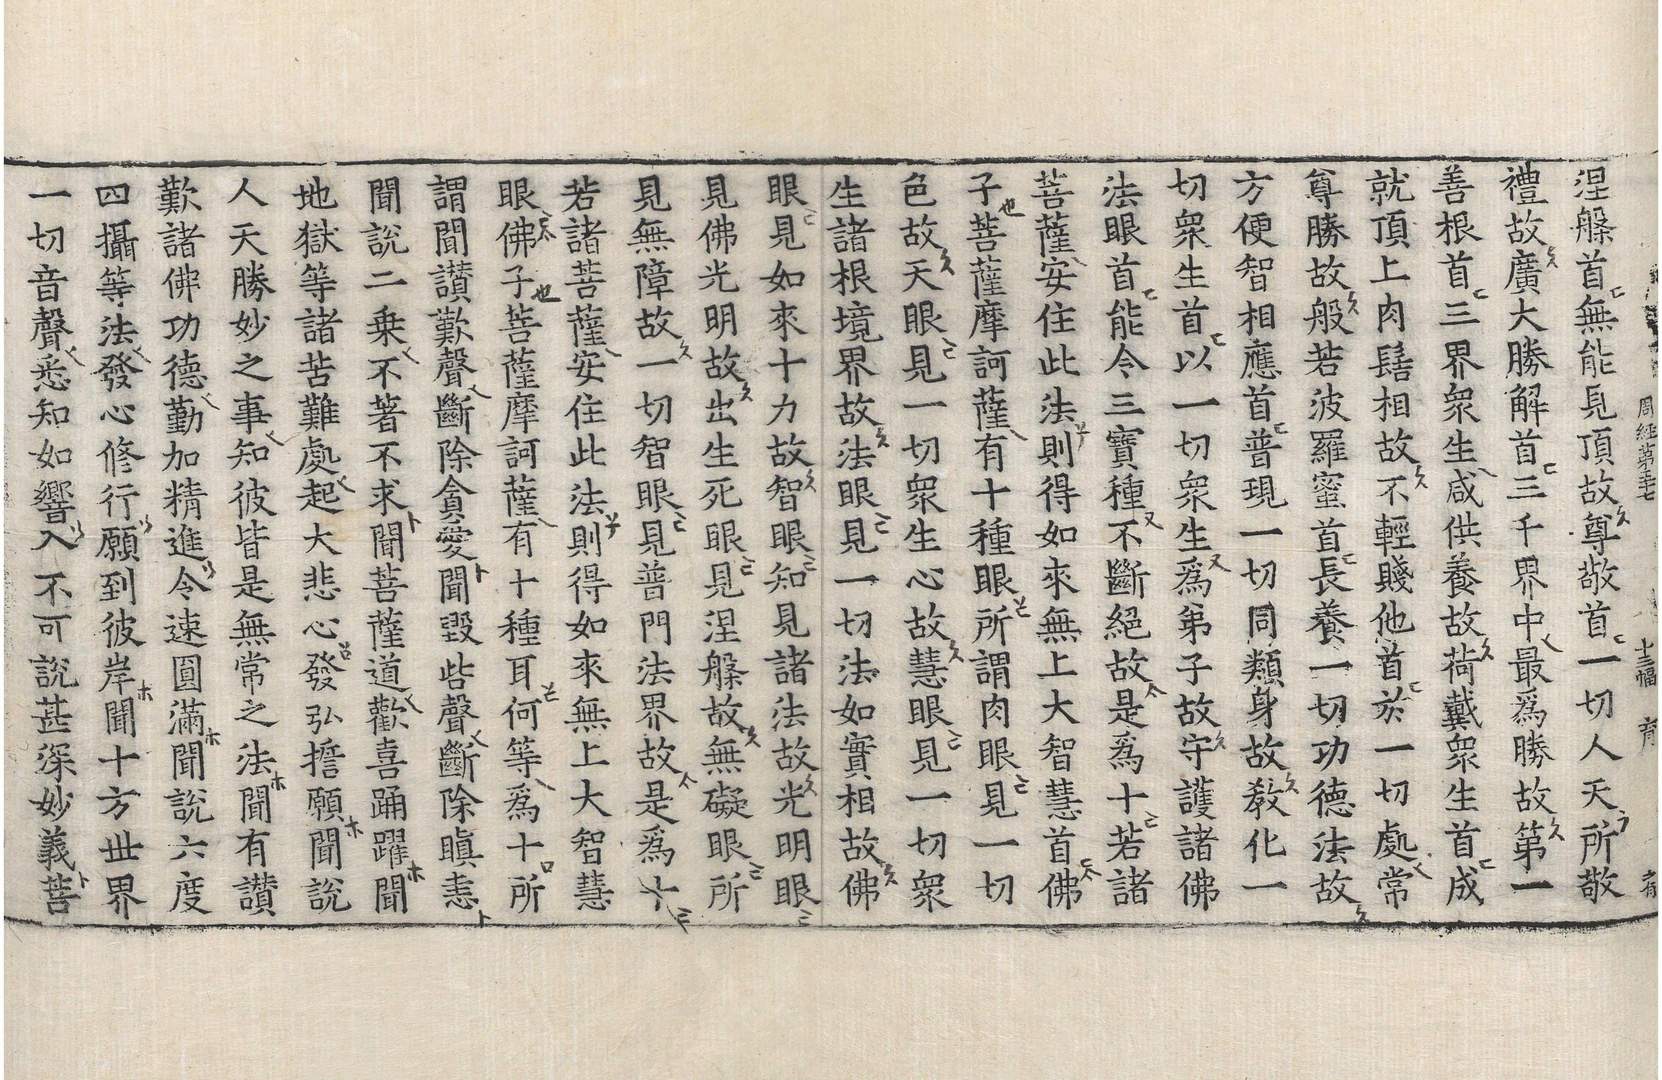 周經第五十七　十三幅
涅槃首無能見頂故尊敬首一切人天所敬
禮故廣大勝解首三千界中最爲勝故第一
善根首三界衆生咸供養故荷戴衆生首成
就頂上肉髻相故不輕賤他首於一切處常
尊勝故般若波羅蜜首長養一切功德法故
方便智相應首普現一切同類身故教化一
切衆生首以一切衆生爲弟子故守護諸佛
法眼首能令三寶種不斷絕故是爲十若諸
菩薩安住此法則得如來無上大智慧首佛
子菩薩摩訶薩有十種眼所謂肉眼見一切
色故天眼見一切衆生心故慧眼見一切衆
生諸根境界故法眼見一切法如實相故佛
眼見如來十力故智眼知見諸法故光明眼
見佛光明故出生死眼見涅槃故無礙眼所
見無障故一切智眼見普門法界故是爲十
若諸菩薩安住此法則得如來無上大智慧
眼佛子菩薩摩訶薩有十種耳何等爲十所
謂聞讚歎聲斷除貪愛聞毀呰聲斷除瞋恚
聞說二乗不著不求聞菩薩道歡喜踊躍聞
地獄等諸苦難處起大悲心發弘擔願聞說
人天勝妙之事知彼皆是無常之法聞有讚
歎諸佛功德勤加精進令速圓滿聞說六度
四攝等法發心修行願到彼岸聞十方世界
一切音聲悉知如響入不可說甚深妙義菩